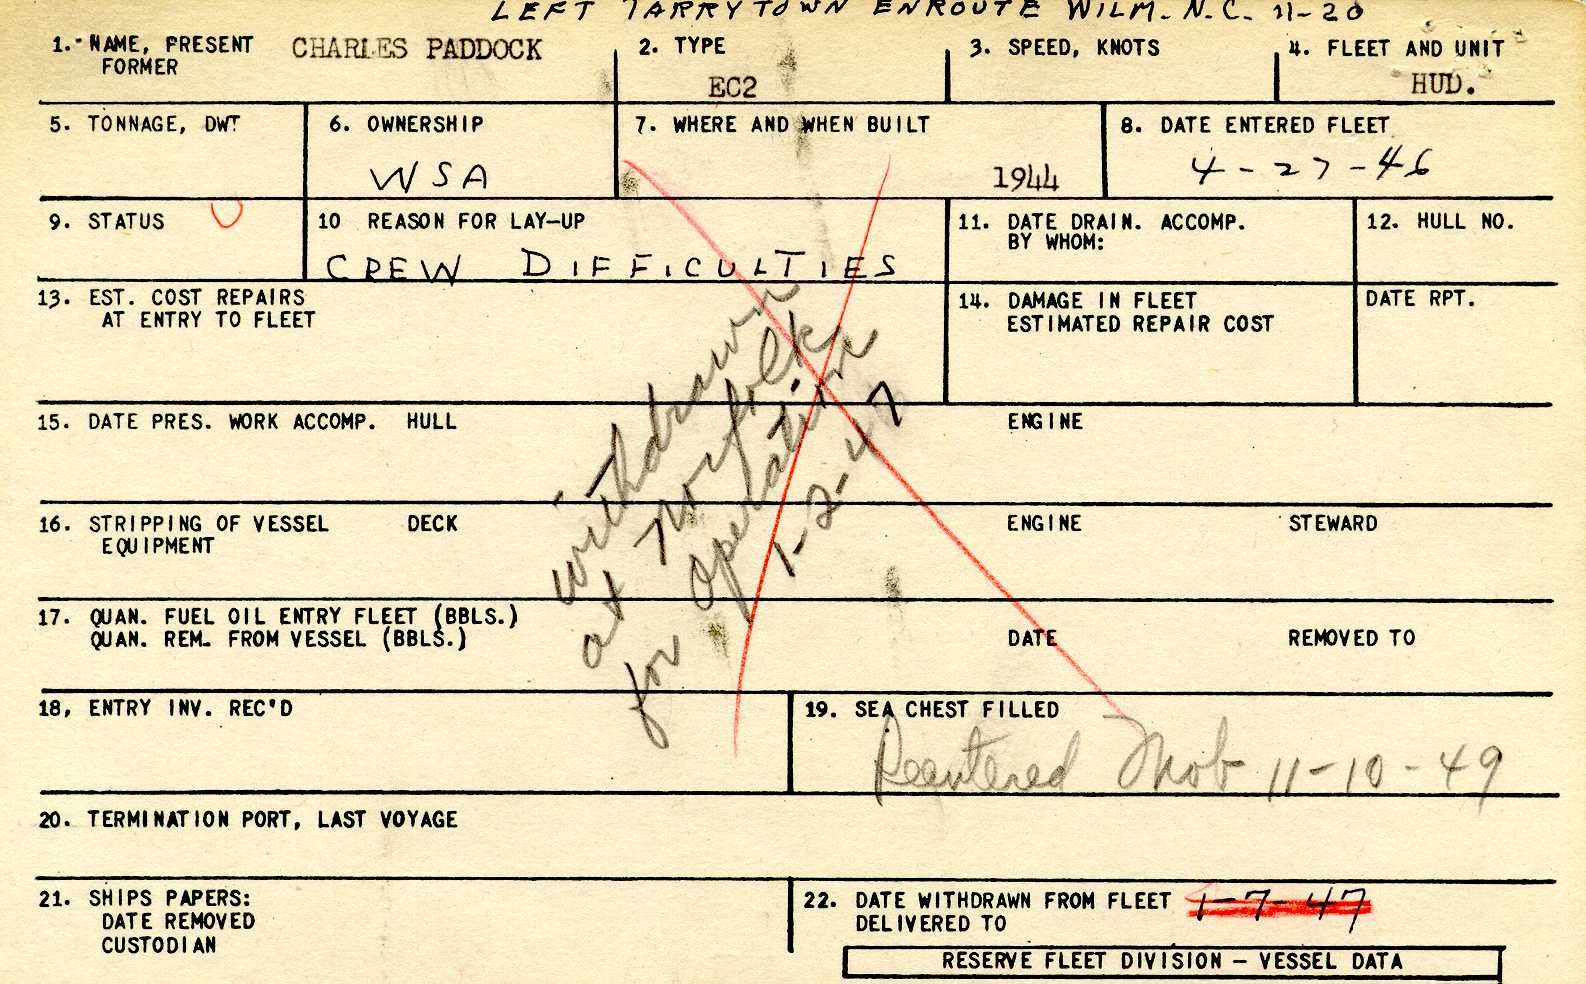 LEFT TARRYTOWN ENROUTE WILM. N.C. 11-20
1. NAME, PRESENT CHARLES PADDOCK
FORMER
2. TYPE
EC2
3. SPEED, KNOTS
4. FLEET AND UNIT
HUD.
5. TONNAGE, DWT
6. OWNERSHIP
WSA
7. WHERE AND WHEN BUILT
1944
8. DATE ENTERED FLEET
4-27-46
9. STATUS
10 REASON FOR LAY-UP
CREW DIFFICULTIES
11. DATE DRAIN. ACCOMP.
BY WHOM:
12. HULL NO.
13. EST. COST REPAIRS
AT ENTRY TO FLEET
14. DAMAGE IN FLEET
ESTIMATED REPAIR COST
DATE RPT.
withdrawn
at Norfolk
for operation
1-2-47
15. DATE PRES. WORK ACCOMP. HULL ENGINE
16. STRIPPING OF VESSEL DECK ENGINE STEWARD
EQUIPMENT
17. QUAN. FUEL OIL ENTRY FLEET (BBLS.)
QUAN. REM. FROM VESSEL (BBLS.) DATE REMOVED TO
18, ENTRY INV. REC'D
19. SEA CHEST FILLED
Reentered Mob 11-10-49
20. TERMINATION PORT, LAST VOYAGE
21. SHIPS PAPERS:
DATE REMOVED
CUSTODIAN
22. DATE WITHDRAWN FROM FLEET 1-7-47
DELIVERED TO
RESERVE FLEET DIVISION - VESSEL DATA